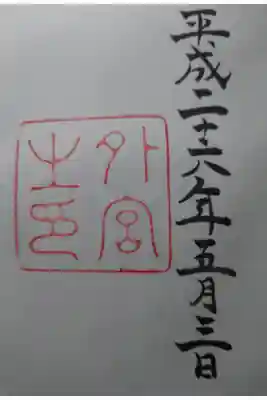 平成二十六年五月三日
外宮之印